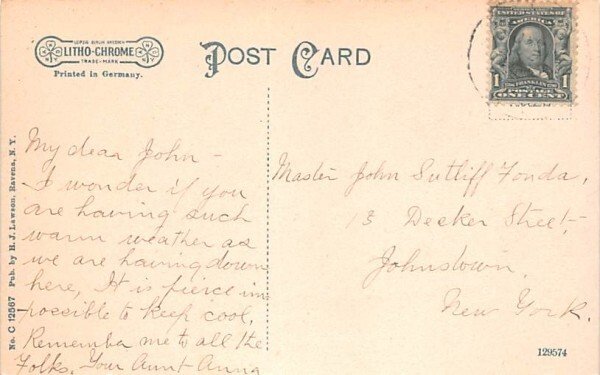 LEIPZIG BERLIN DRESDEN
LITHO-CHROME
TRADE-MARK
Printed in Germany.
POST CARD
UNITED STATES OF AMERICA
FRANKLIN
1 1
POSTAGE
ONE CENT
No. C 12567 Pub. by H. J. Lawson, Ravena, N. Y.
My dear John -
I wonder if you
are having such
warm weather as
we are having down
here, It is fierce im
possible to keep cool,
Remember me to all the
Folks, Your Aunt Anna
Master John Sutliff Fonda,
13 Decker Street,
Johnstown,
New York.
129574